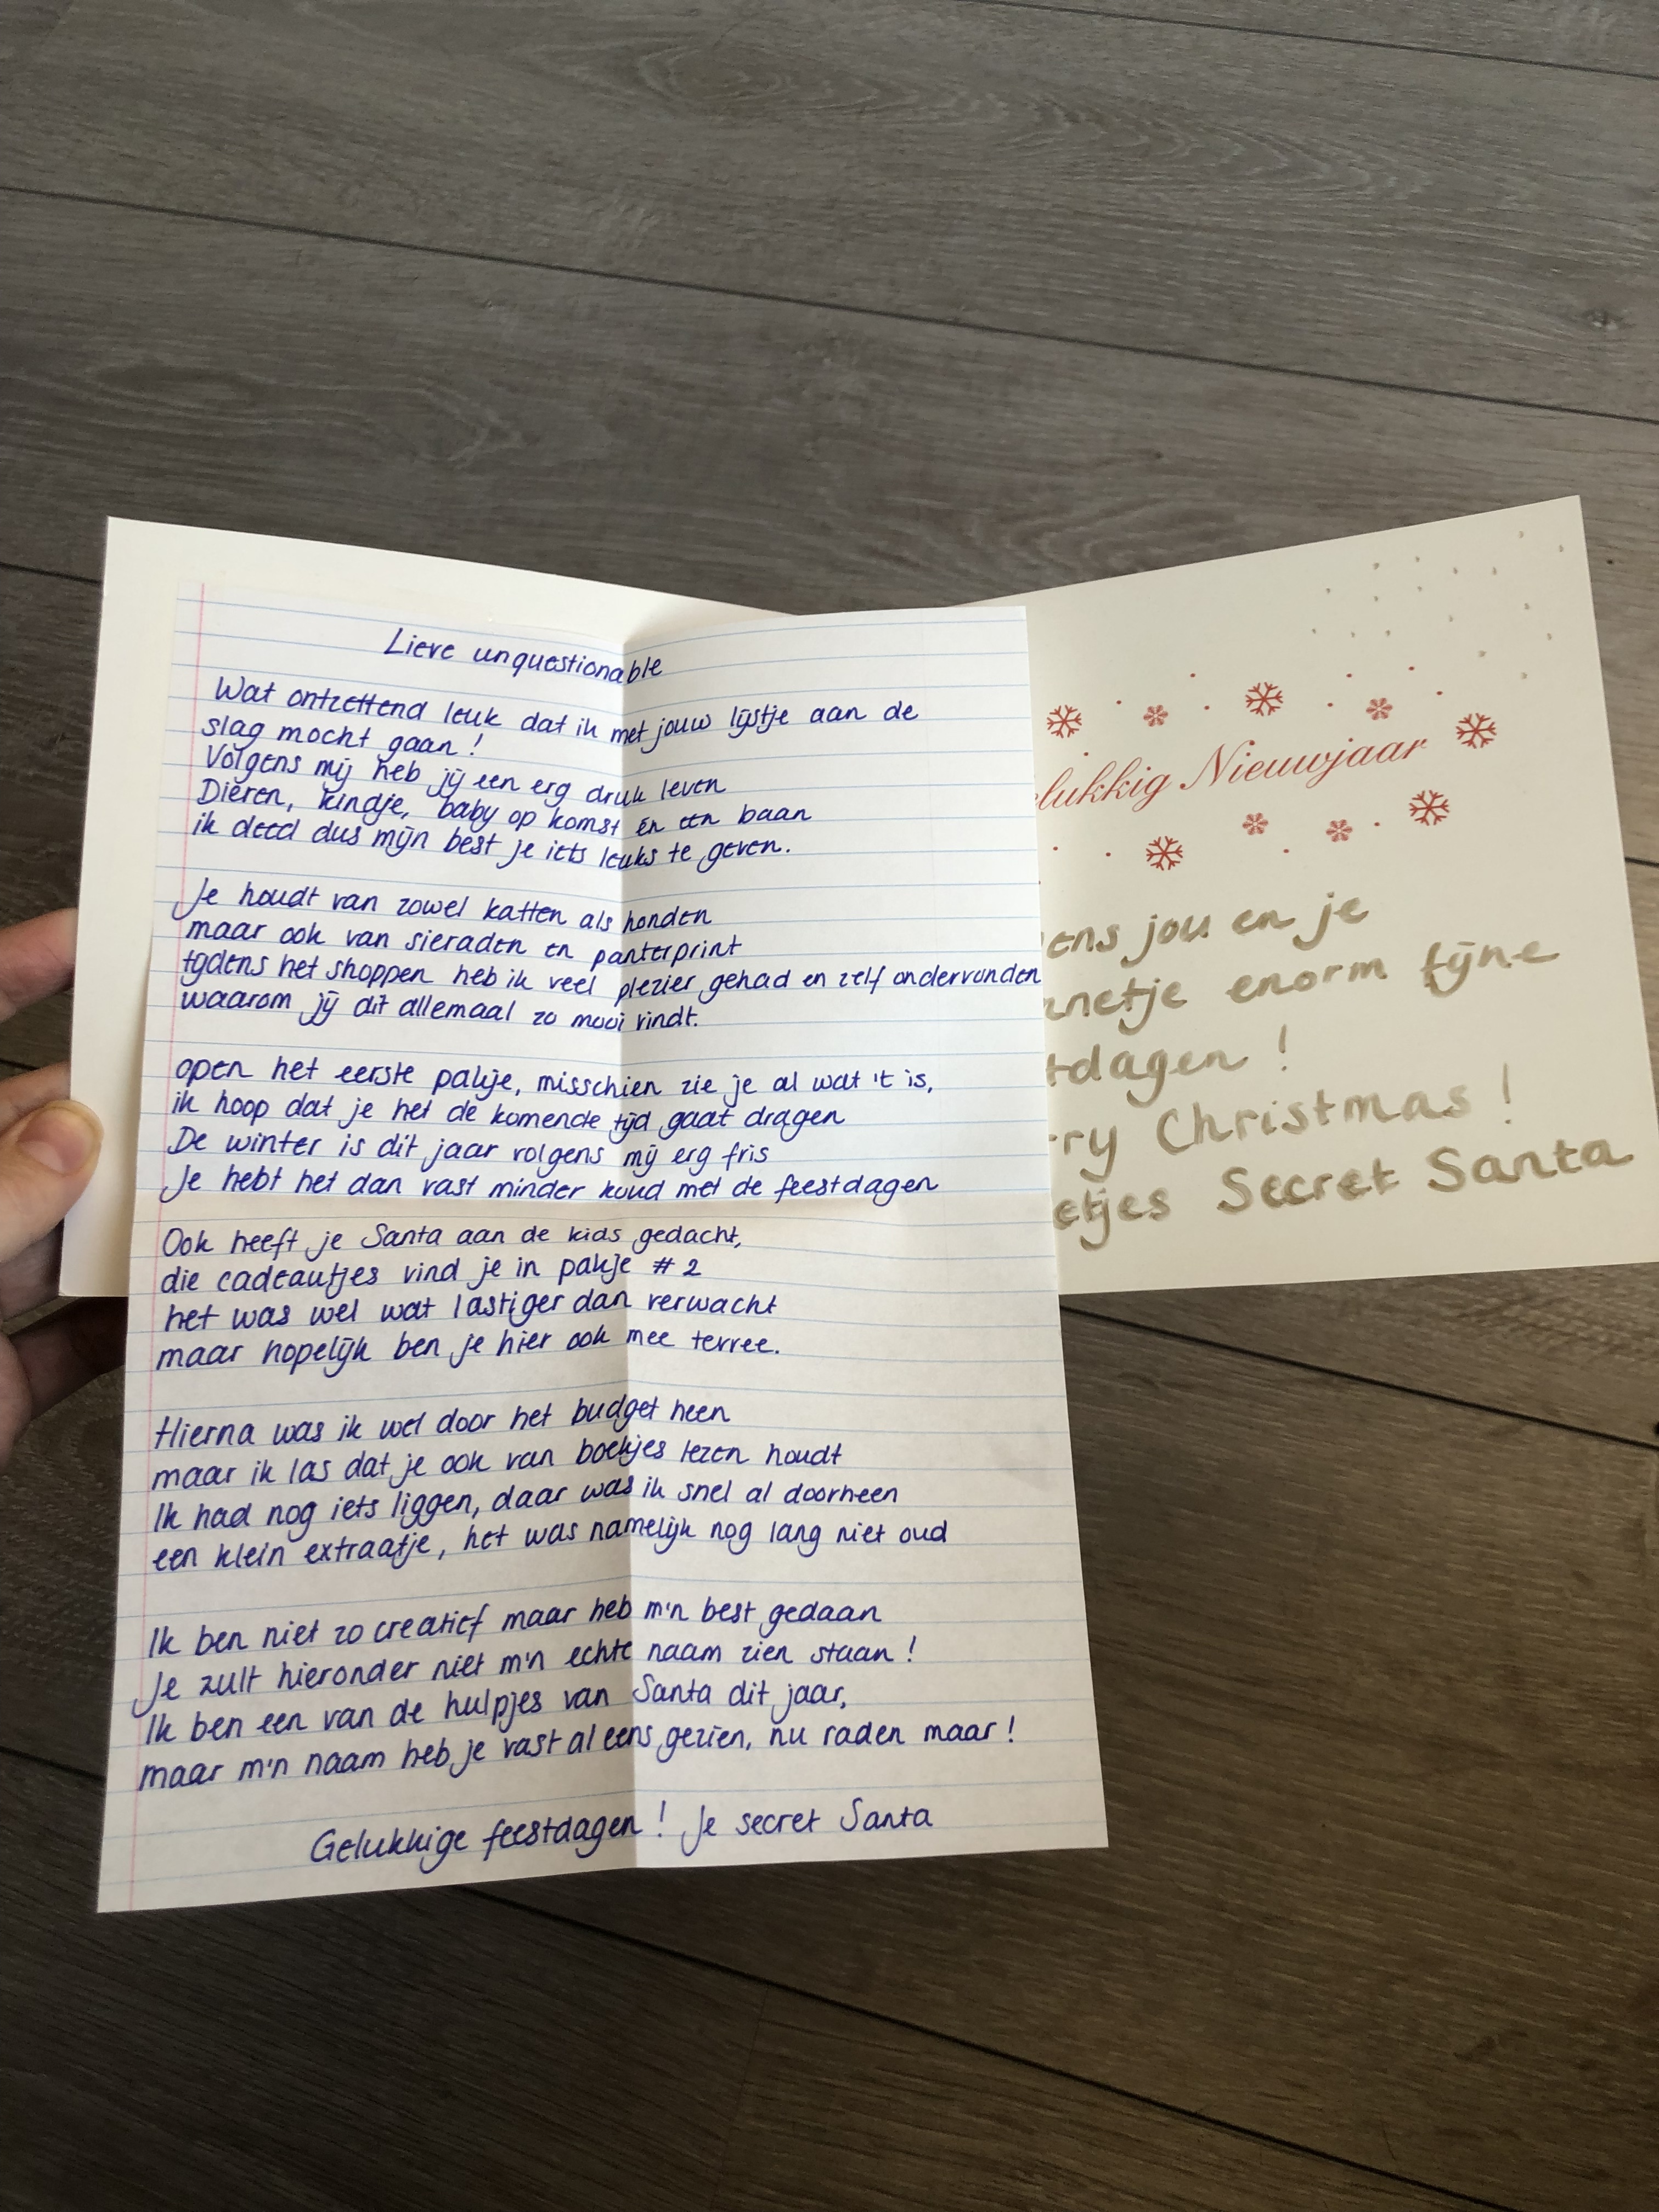 Lieve unquestionable
Wat ontzettend leuk dat ik met jouw lijstje aan de
slag mocht gaan!
Volgens mij heb jij een erg druk leven
Dieren, kindje, baby op komst én een baan
ik deed dus mijn best je iets leuks te geven.
Je houdt van zowel katten als honden
maar ook van sieraden en panterprint
tijdens het shoppen heb ik veel plezier gehad en zelf ondervonden
waarom jij dit allemaal zo mooi vindt.
open het eerste pakje, misschien zie je al wat 't is,
ik hoop dat je het de komende tijd gaat dragen
De winter is dit jaar volgens mij erg fris
Je hebt het dan vast minder koud met de feestdagen
Ook heeft je Santa aan de kids gedacht,
die cadeautjes vind je in pakje #2
het was wel wat lastiger dan verwacht
maar hopelijk ben je hier ook mee tevree.
Hierna was ik wel door het budget heen
maar ik las dat je ook van boekjes lezen houdt
Ik had nog iets liggen, daar was ik snel al doorheen
een klein extraatje, het was namelijk nog lang niet oud
Ik ben niet zo creatief maar heb m'n best gedaan
Je zult hieronder niet m'n echte naam zien staan!
Ik ben een van de hulpjes van Santa dit jaar,
maar m'n naam heb je vast al eens gezien, nu raden maar!
Gelukkige feestdagen! Je secret Santa
elukkig Nieuwjaar
ens jou en je
nnetje enorm fijne
tdagen!
rry Christmas!
etjes Secret Santa